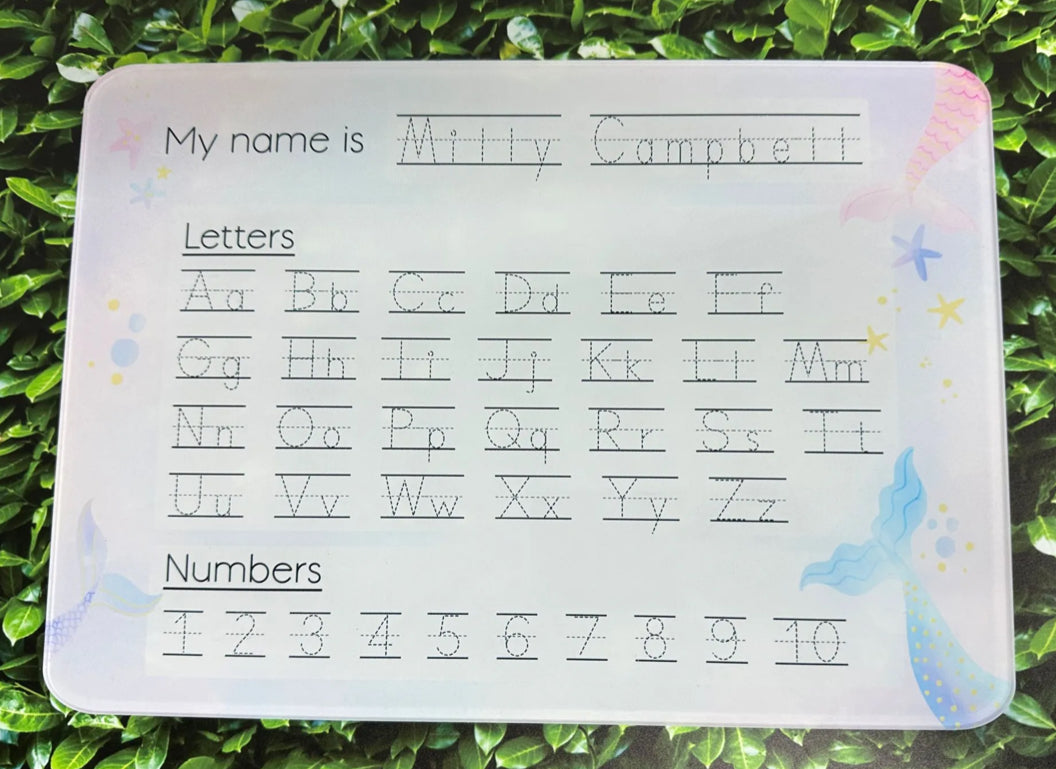 My name is Milly Campbell
Letters
Aa Bb Cc Dd Ee Ff
Gg Hh Ii Jj Kk Ll Mm
Nn Oo Pp Qq Rr Ss Tt
Uu Vv Ww Xx Yy Zz
Numbers
1 2 3 4 5 6 7 8 9 10